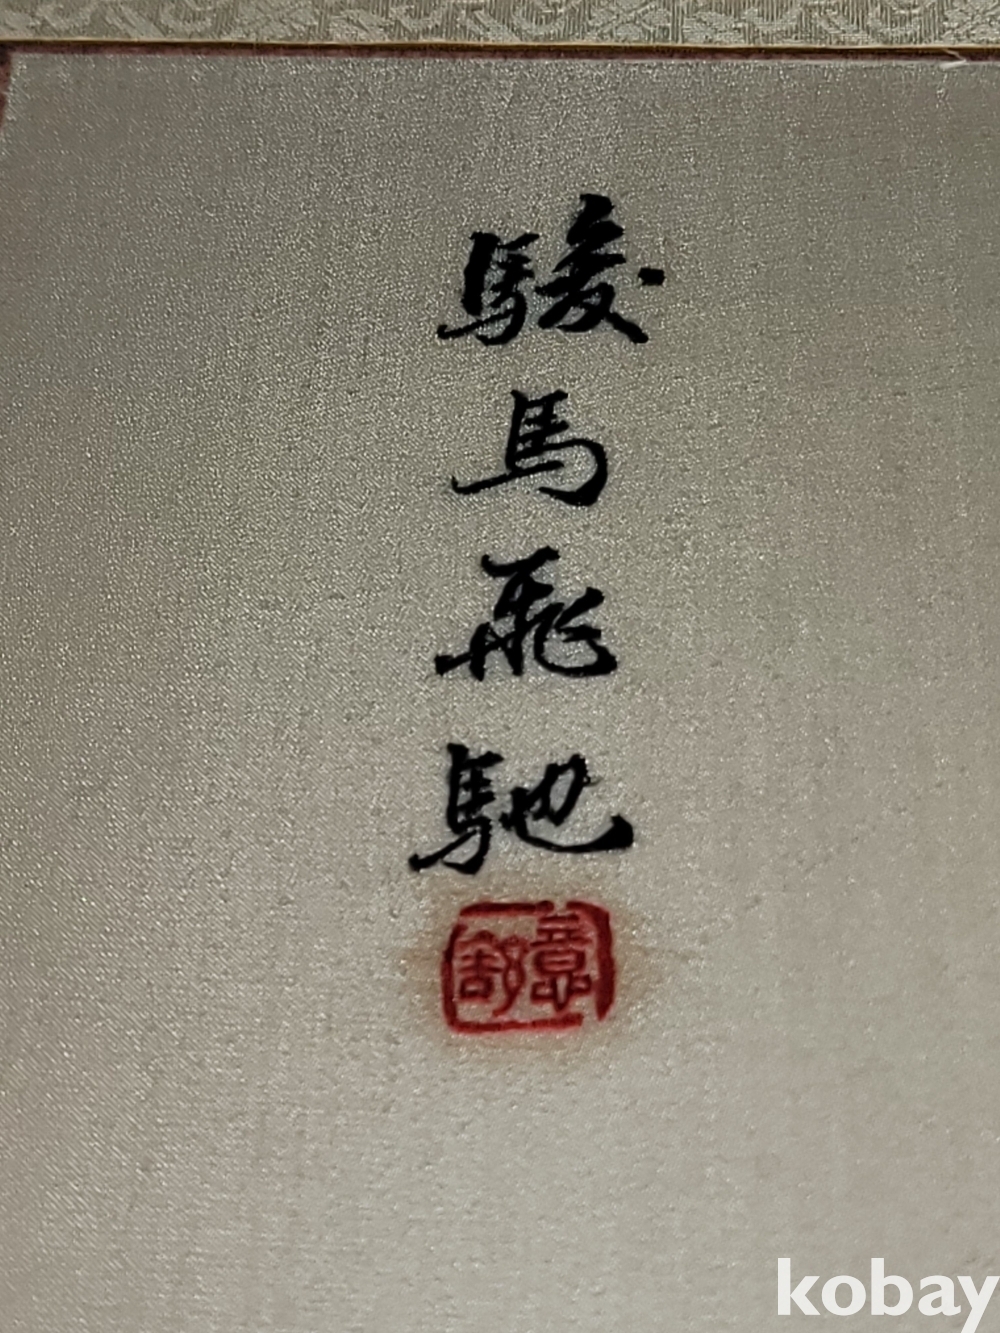 駿馬飛馳
意舒
kobay